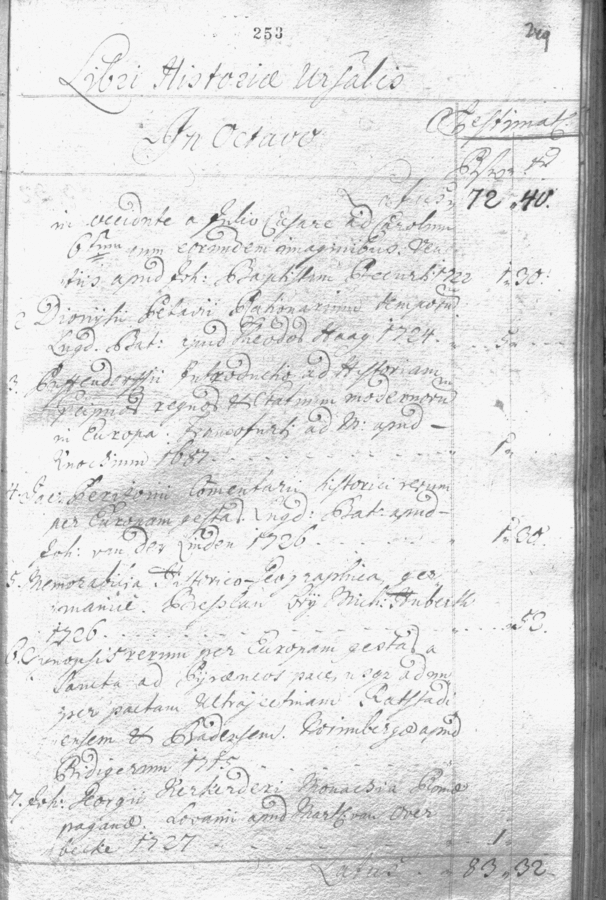 253
249
Libri Historiæ Ursalis
In Octavo
Æstimat.
Latus 72 „ 40.
in occidente a Julio Cæsare ad Carolum
6tum cum eorundem imaginibus.
apud Joh: Baptistam Recurti 1722 1 „ 30.
2 Dionysii Petavii Rationarium temporum
Lugd. Bat: apud Theodor Haag 1724.
3. Puffendorffii Introductio ad Historiam
præcipuor regnor & statuum modernorum
in Europa. Francofurti ad M: apud
Knochium 1687. 1 „
4. Jac. Perizonii Comentarii historici rerum
per Europam gestar. Lugd: Bat: apud
Joh: van der Linden 1726 1 „ 30.
5. Memorabilia Historico-Geographica ger
maniæ. Breslau bey Mich: Huberth
1726.
6. Synopsis rerum per Europam gestar a
sancita ad Pyræneos pace, ad
per pactam Ultrajectinam Rastadi
ensem & Badensem. Norimbergæ apud
Rüdigerum 1715
7. Joh: Georgii Kerkerderi Monachia Romæ
paganæ. Lovanii apud Martinum Over
becke 1727 1 „
Latus 83 „ 32